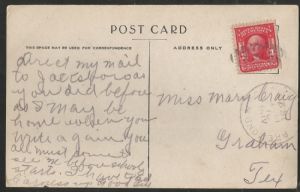 POST CARD
THIS SPACE MAY BE USED FOR CORRESPONDENCE
ADDRESS ONLY
Direct my mail
to Jacksboro as
you did before
as I may be
home when you
write again you
all must come to
see me before school
starts I have
Miss Mary Craig
Graham
Tex